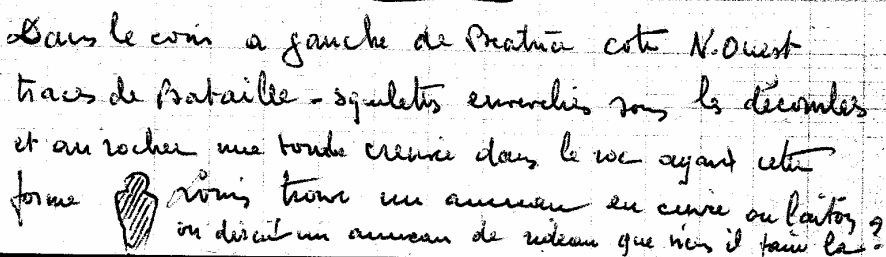 Dans le coin a gauche de Beatrice coté N. Ouest
traces de Bataille - squelettes sous les décombres
et au rocher une tombe creusée dans le roc ayant cette
forme Louis trouve un anneau en cuivre ou laiton
on dirait un anneau de rideau que vient il faire la?